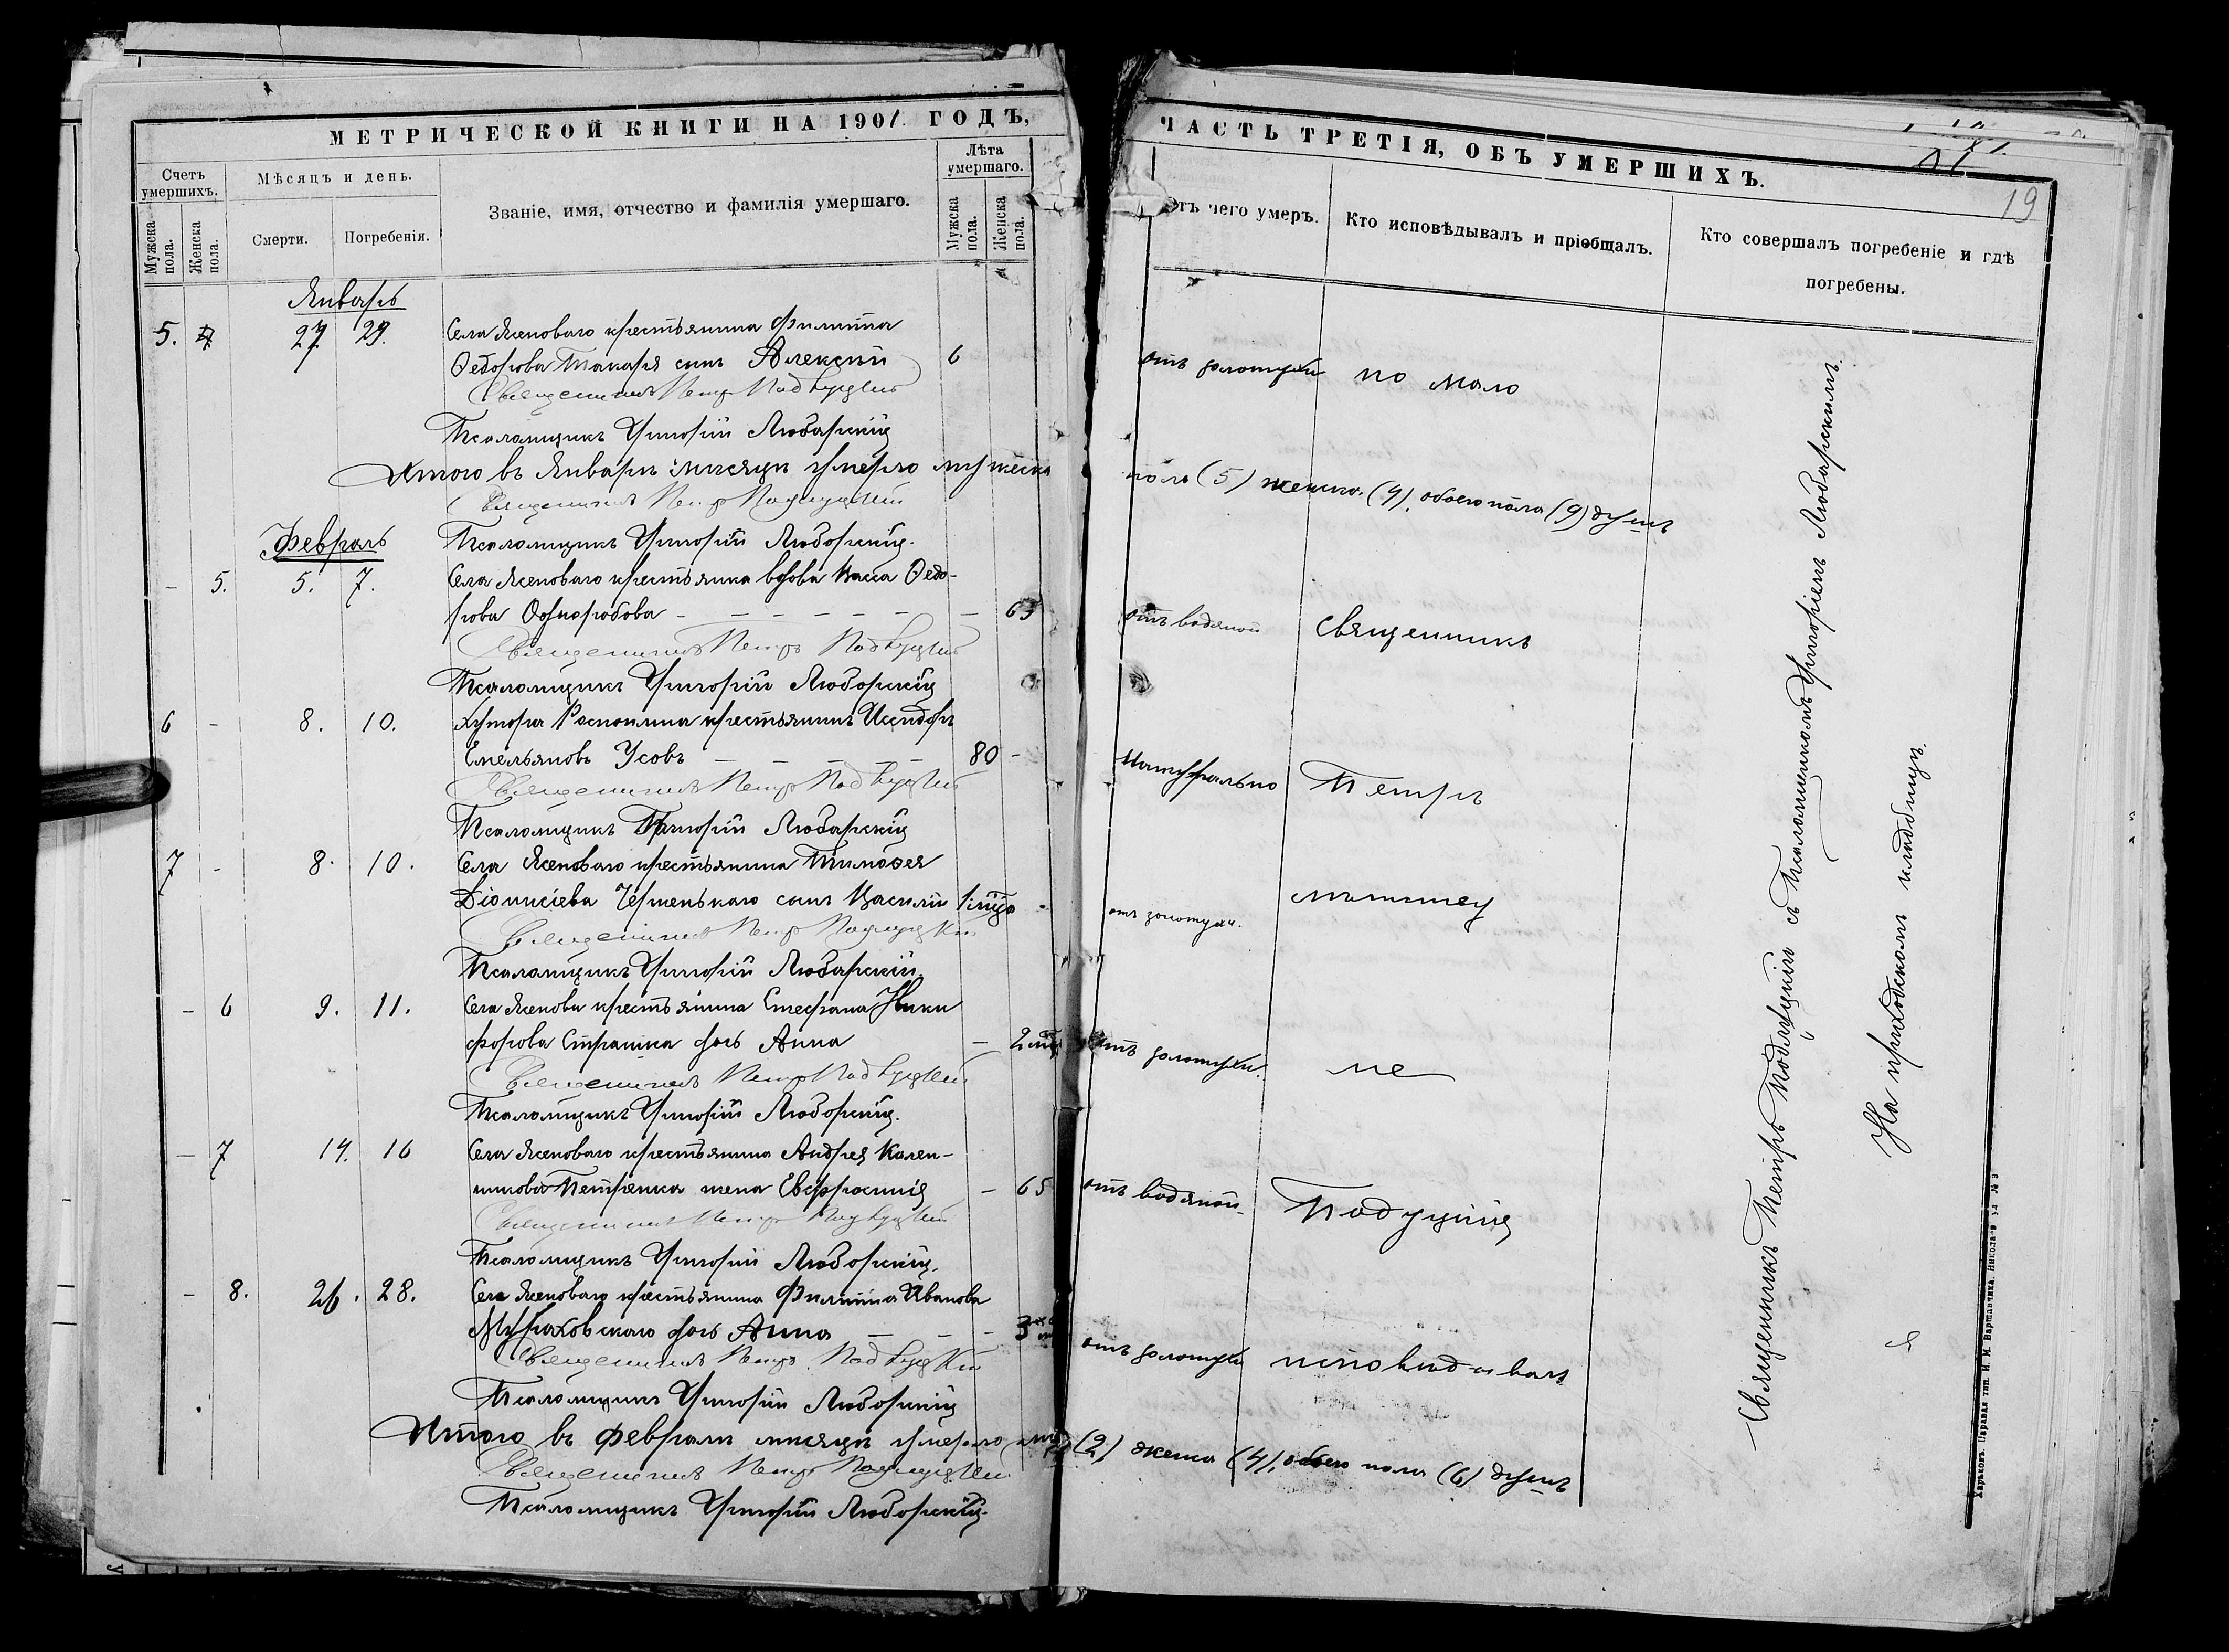 МЕТРИЧЕСКОЙ КНИГИ НА 1901 ГОДЪ,
Счетъ умершихъ.
Мужска пола.
Женска пола.
Мѣсяцъ и день.
Смерти.
Погребенія.
Званіе, имя, отчество и фамилія умершаго.
Лѣта умершаго.
Мужска пола.
Женска пола.
Январь
5. 27 29. Села Ясеноваго крестьянина Филиппа
Ѳедорова Токаря сынъ Алексій 6
Священникъ Петръ Подлуцкій
Псаломщикъ Григорій Любарскій
Итого въ Январѣ мѣсяцѣ умерло мужеска
Священникъ Петръ Подлуцкій
Февраль
Псаломщикъ Григорій Любарскій.
- 5. 5. 7. Села Ясеноваго крестьянка вдова Васса Ѳедо-
рова Одноробова - 65
Священникъ Петръ Подлуцкій
Псаломщикъ Григорій Любарскій
6 - 8. 10. Хутора крестьянинъ Исидоръ
Емельяновъ Усовъ 80 -
Священникъ Петръ Подлуцкій
Псаломщикъ Григорій Любарскій
7 - 8. 10. Села Ясеноваго крестьянина Тимоѳея
Діонисіева сынъ Василій 1 года
Священникъ Петръ Подлуцкій
Псаломщикъ Григорій Любарскій.
- 6 9. 11. Села Ясенова крестьянина Стефана Ники
форова Страшка дочь Анна - 2
Священникъ Петръ Подлуцкій
Псаломщикъ Григорій Любарскій.
- 7 14. 16 Села Ясеноваго крестьянина Андрея Кален-
никова Петренка жена Евфросинія - 65
Священникъ Петръ Подлуцкій
Псаломщикъ Григорій Любарскій.
- 8. 26. 28. Села Ясеноваго крестьянина Филиппа Иванова
Мураховскаго дочь Анна - 3
Священникъ Петръ Подлуцкій
Псаломщикъ Григорій Любарскій
Итого въ Февралѣ мѣсяцѣ умерло
Священникъ Петръ Подлуцкій
Псаломщикъ Григорій Любарскій.
ЧАСТЬ ТРЕТІЯ, ОБЪ УМЕРШИХЪ.
19
Отъ чего умеръ.
Кто исповѣдывалъ и пріобщалъ.
Кто совершалъ погребеніе и гдѣ
погребены.
отъ золотухи по мало
пола (5) женска (4), обоего пола (9) душъ
отъ водяной Священникъ
натурально Петръ
отъ золотухи. лѣтству
отъ золотухи. не
отъ водяной Подлуцкій
отъ золотухи исповѣдывалъ
(2) женска (4), обоего пола (6) душъ
Священникъ Петръ Подлуцкій съ Псаломщикомъ Григоріемъ Любарскимъ.
На приходскомъ кладбищѣ.
Харьковъ. Паровая тип. И. М. Варшавчика. Николаев ул № 3